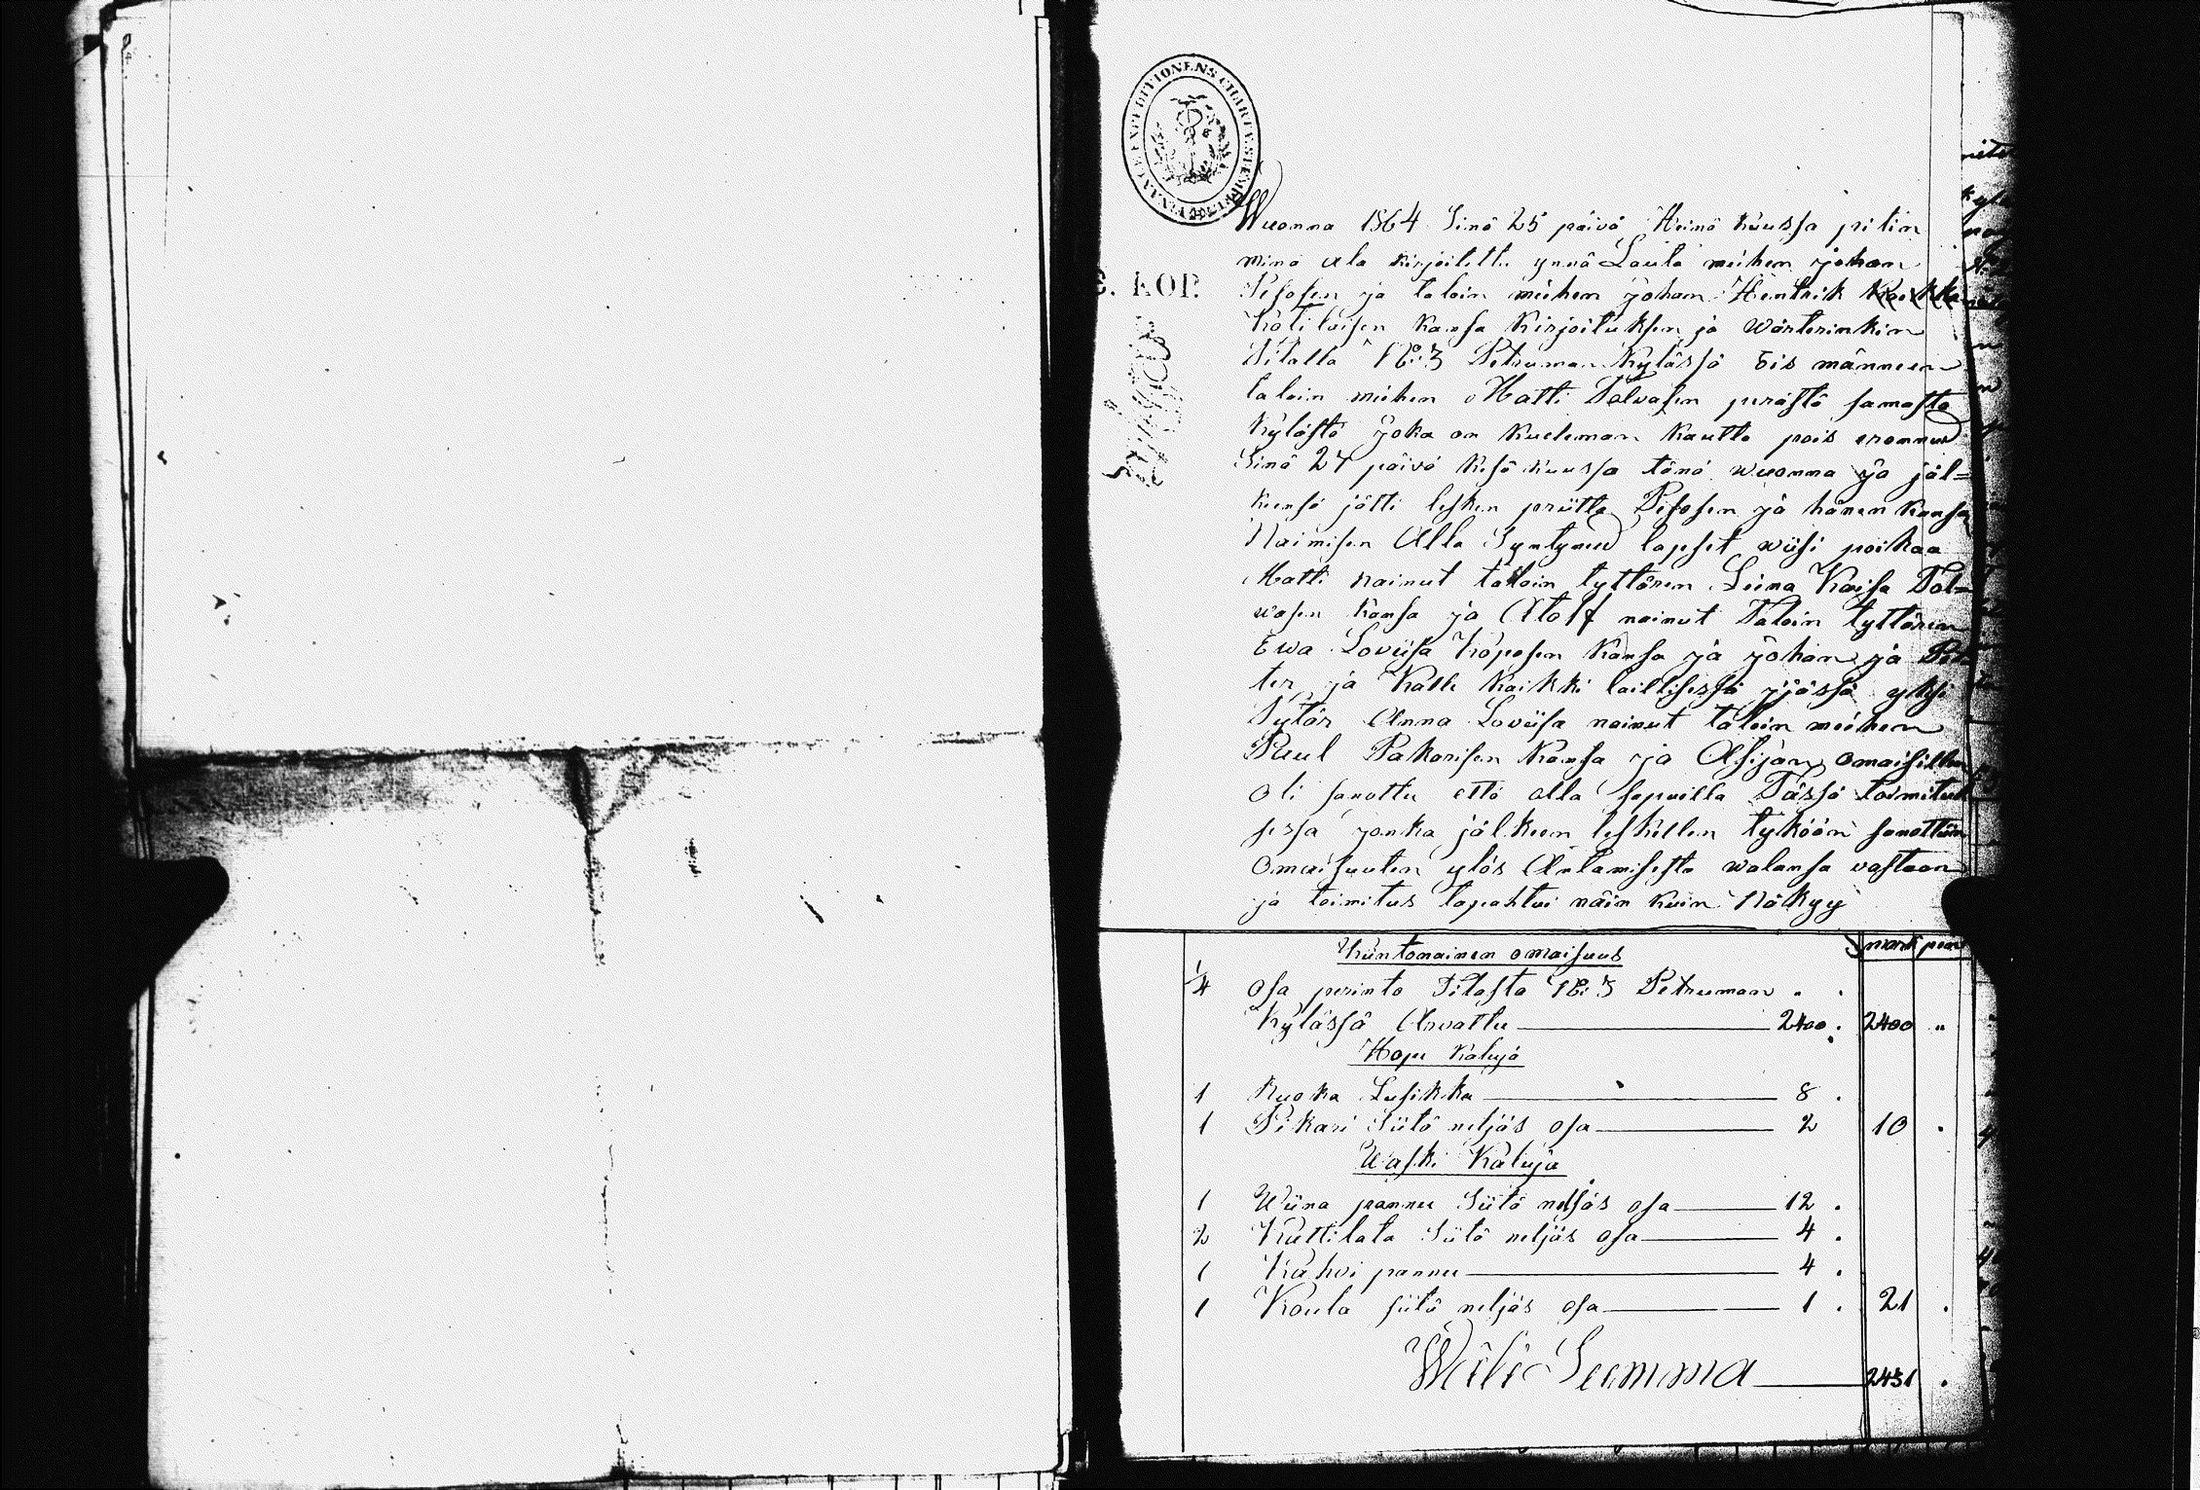 FINANCE EXPEDITIONENS CHARTÆ SIGILLATÆ
3. KOP.
Wuonna 1864 Sinä 25 päivä Heinä kuussa pitin
minä ala kirjoitettu ynnä Lauta miehen Johan
Pesosen ja taloin miehen Johan Hentrik
Kotilaisen kansa Kirjoituksen ja Wärterinkin
Tilalla No: 3 Petruman kylässä Eis männeen
taloin miehen Matti Tolvasen perästä samasta
kylästä joka on kuoleman kautta pois eronnut
Sinä 27 päivä kesä kuussa tänä wuonna ja jäl=
keensä jätti lesken priitta Pesosen ja hänen kansa
Naimisen Alla Syntyned lapset wiisi poikaa
Matti nainut taloin tyttären Leena Kaisa Tol=
wasen kansa ja Atolf nainut Taloin tyttären
Ewa Loviisa Koposen kansa ja Johan ja Pet
ter ja Kalle kaikki laillisessa ijässä yksi
Tytär Anna Loviisa nainut taloin miehen
Paul Pakarisen kansa ja Asijan omaisillen
Oli sanottu että olla sapuilla Tässä toimituk
sessa jonka jälkeen leskellen tykään sanottiin
Omaisuuten ylös Antamisesta walansa vastaan
ja toimitus tapahtui näin kuin Näkyy
Kiintonainen omaisuus mark pen
1/4 Osa perinto Tilasta No: 3 Petruman
Kylässä Arvattu 2400 . 2400 "
Hopu Kaluja
1 Ruoka Lusikka 8 .
1 Pikari Siitä neljäs osa 2 10 .
Waski Kaluja
1 Wiina pannu Siitä neljäs osa 12 .
2 Kuttilata Siitä neljäs osa 4 .
1 Kahvi pannu 4 .
1 Kaula siitä neljäs osa 1 . 21 .
Wäli Summa 2431 .